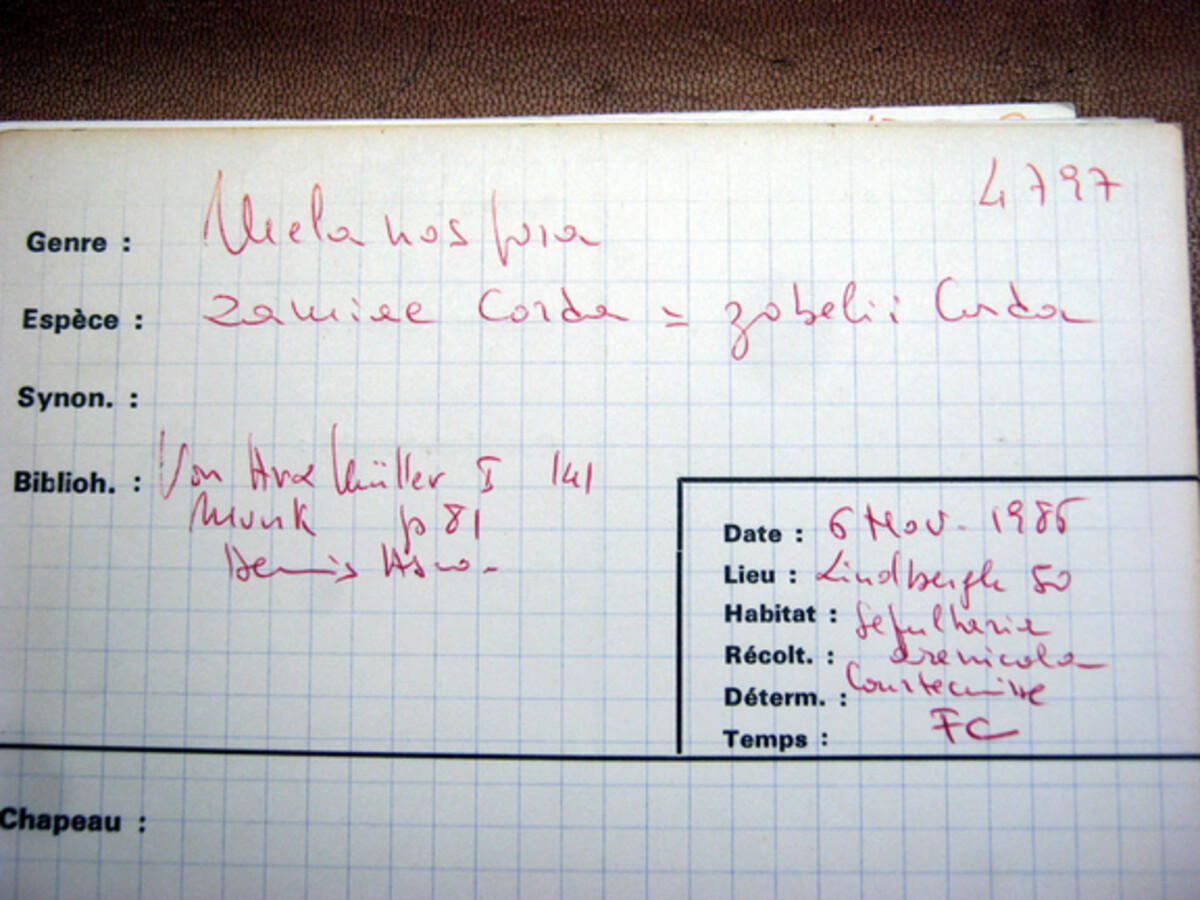 4797
Genre : Melanospora
Espèce : zamiae Corda = zobelii Corda
Synon. :
Biblioh. : Von Arx Müller I 141
Munk p 81
Dennis Asco-
Date : 6 Nov. 1986
Lieu : Lindbergh 50
Habitat : Sepultaria
Récolt. : arenicola
Déterm. : Courtecuisse
Temps : FC
Chapeau :